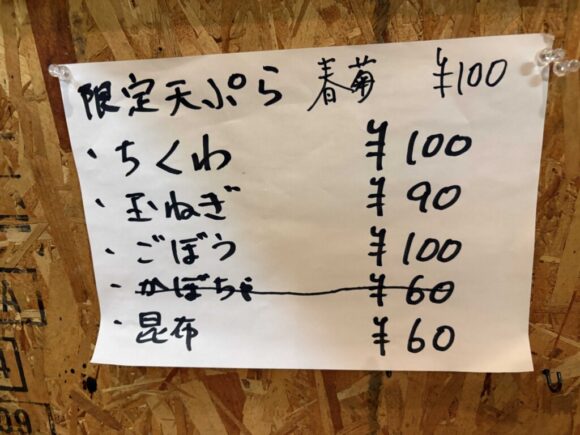 限定天ぷら 春菊 ¥100
・ちくわ ¥100
・玉ねぎ ¥90
・ごぼう ¥100
・かぼちゃ ¥60
・昆布 ¥60